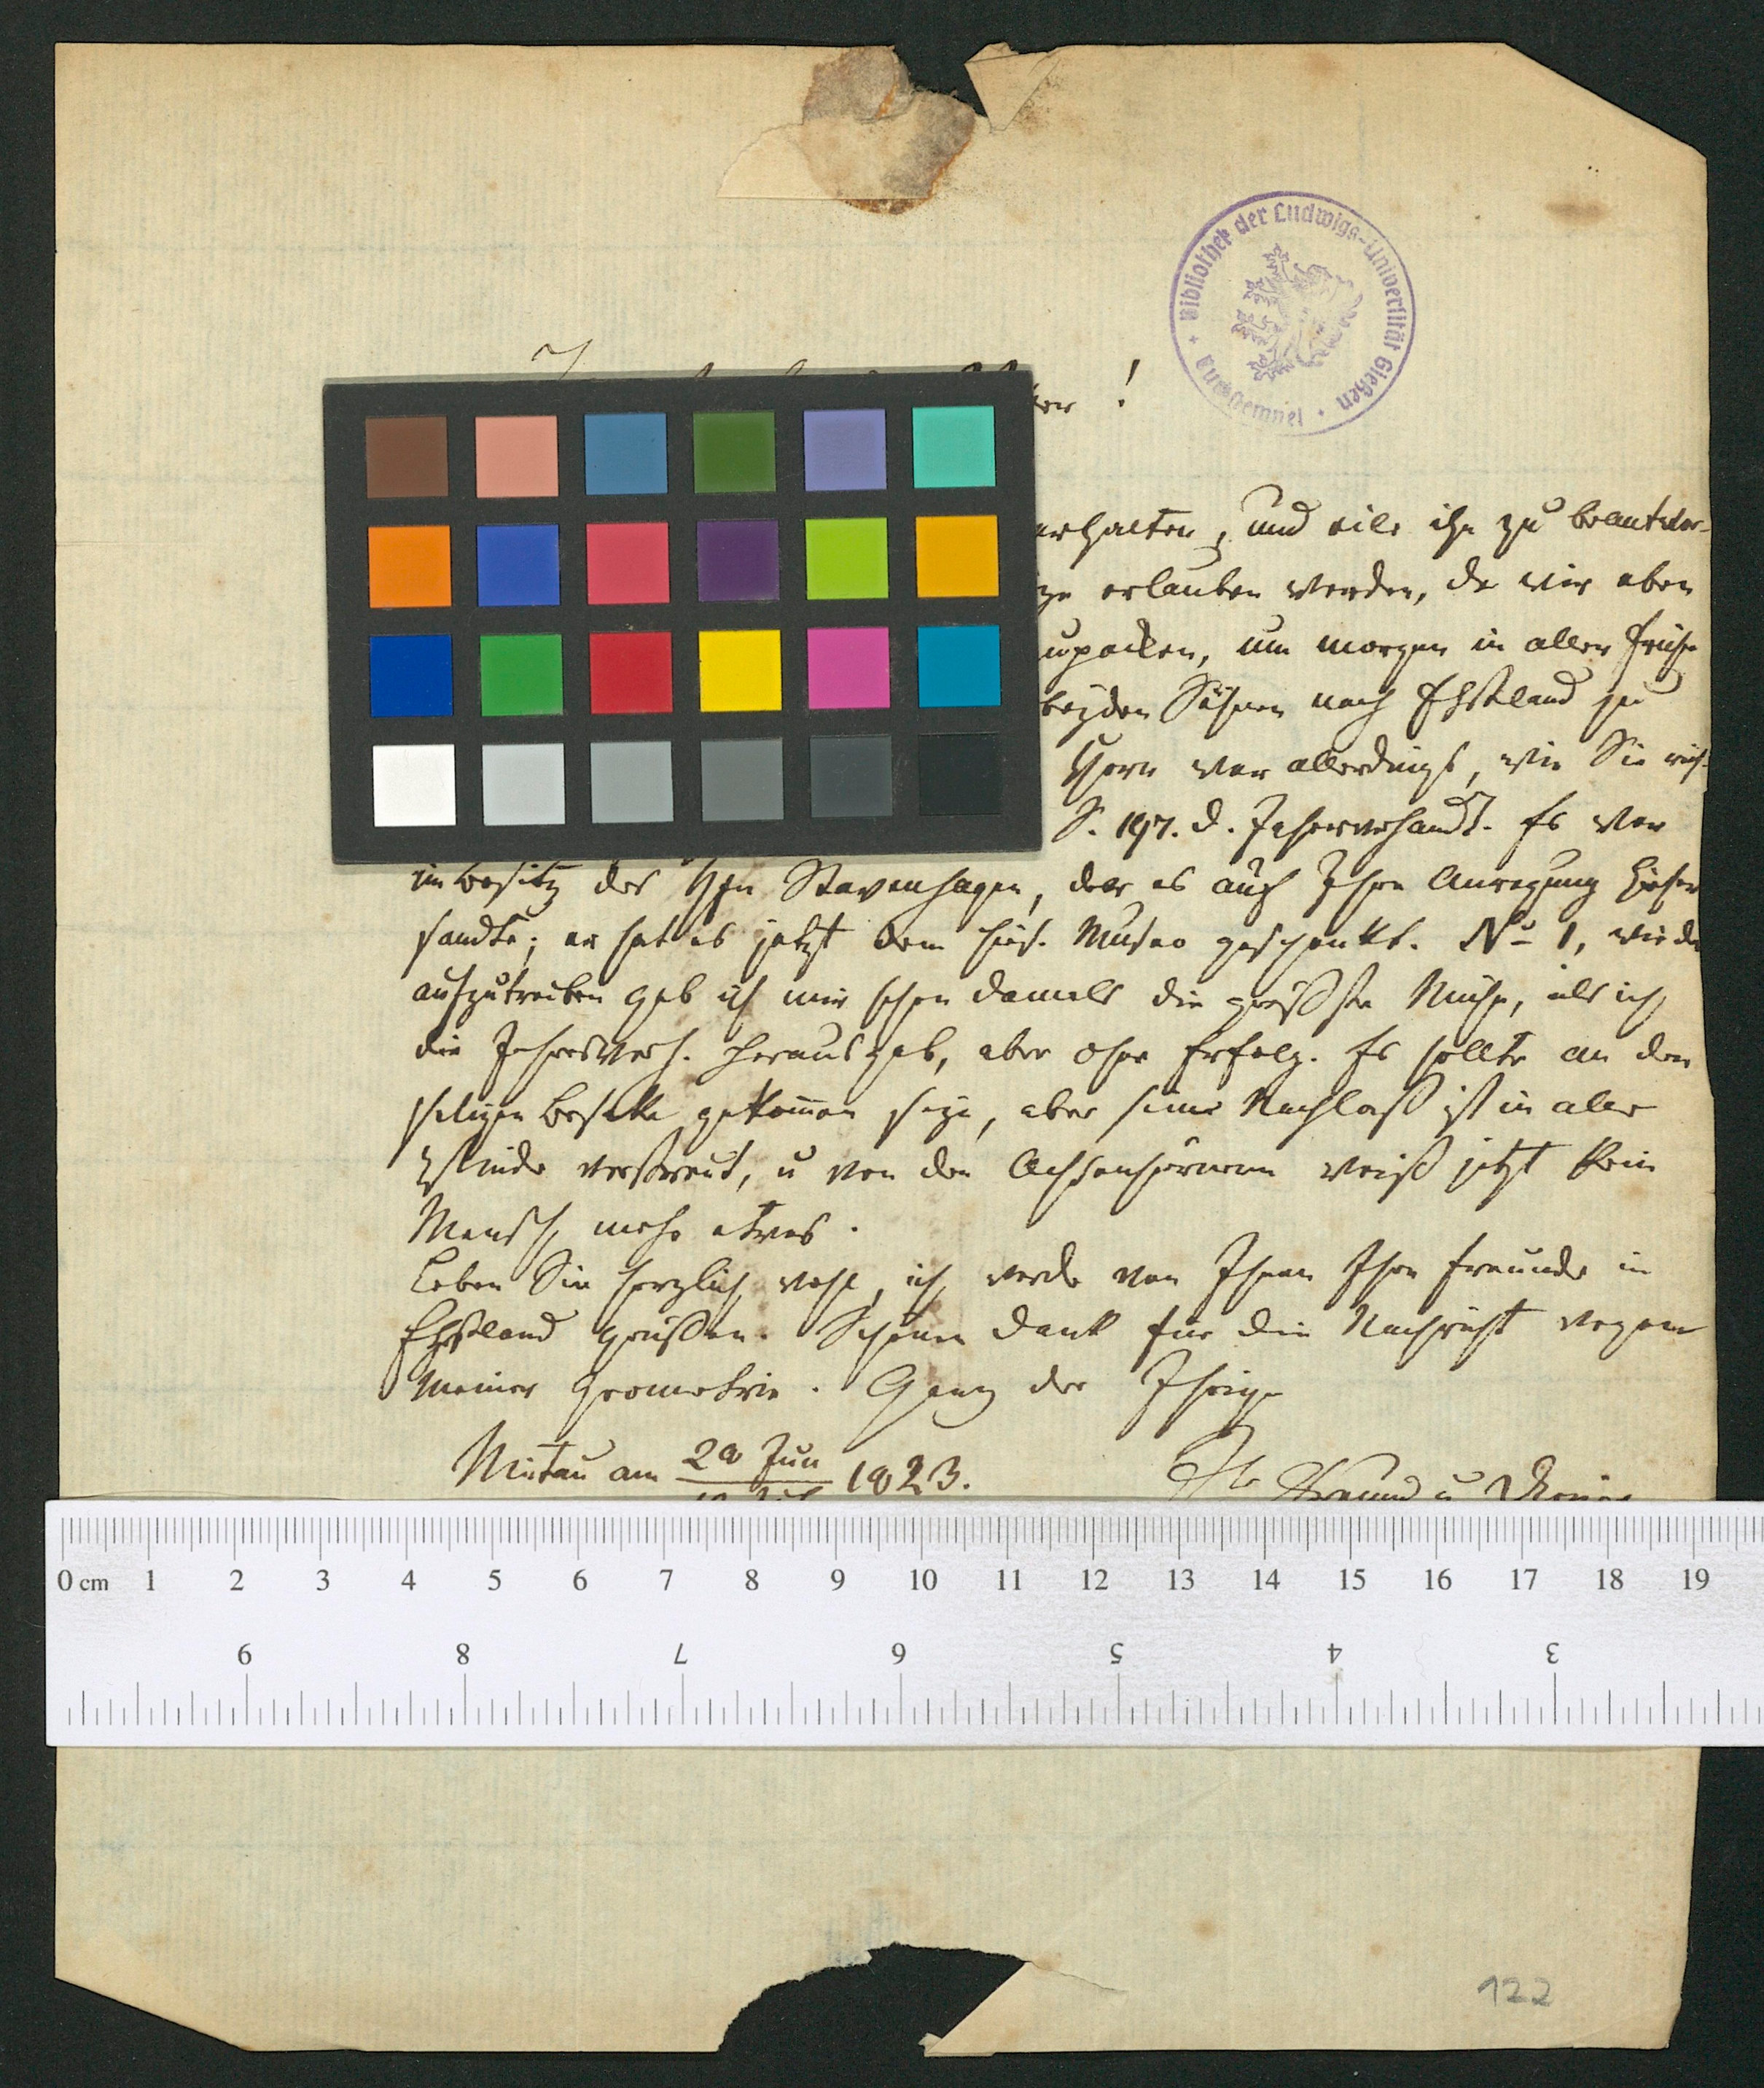 Bibliothek der Ludwigs-Universität Gießen
!
erhalten, und eile ihn zu beantwor-
erlauben werden, da wir eben
um morgen in aller Frühe
beyden Söhnen nach Ehstland zu
Horn war allerdings, wie Sie
S. 197. d. Jahresverhandl. Es war
im Besitz des Hrn Stavenhagen, der es auf Ihre Anregung hieher
sandte; er hat es jetzt dem hies. Museo geschenkt. No 1, wieder
aufzutreiben gab ich mir schon damals die größste Mühe, als ich
die Jahresverh. herausgab, aber ohne Erfolg. Es sollte an den
seligen Beseke gekommen seyn, aber seine Nachlaß ist in alle
Winde verstreut, u von den hörnern weiß jetzt kein
Mensch mehr etwas.
Leben Sie herzlich wohl, ich werde von Ihnen Ihre Freunde in
Ehstland grüßen. Schönen Dank für die Nachricht wegen
meiner Geometrie. Ganz der Ihrige
Mitau am Jun 1823.
Ihr Freund u
0 cm 1 2 3 4 5 6 7 8 9 10 11 12 13 14 15 16 17 18 19
9 8 7 6 5 4 3
122